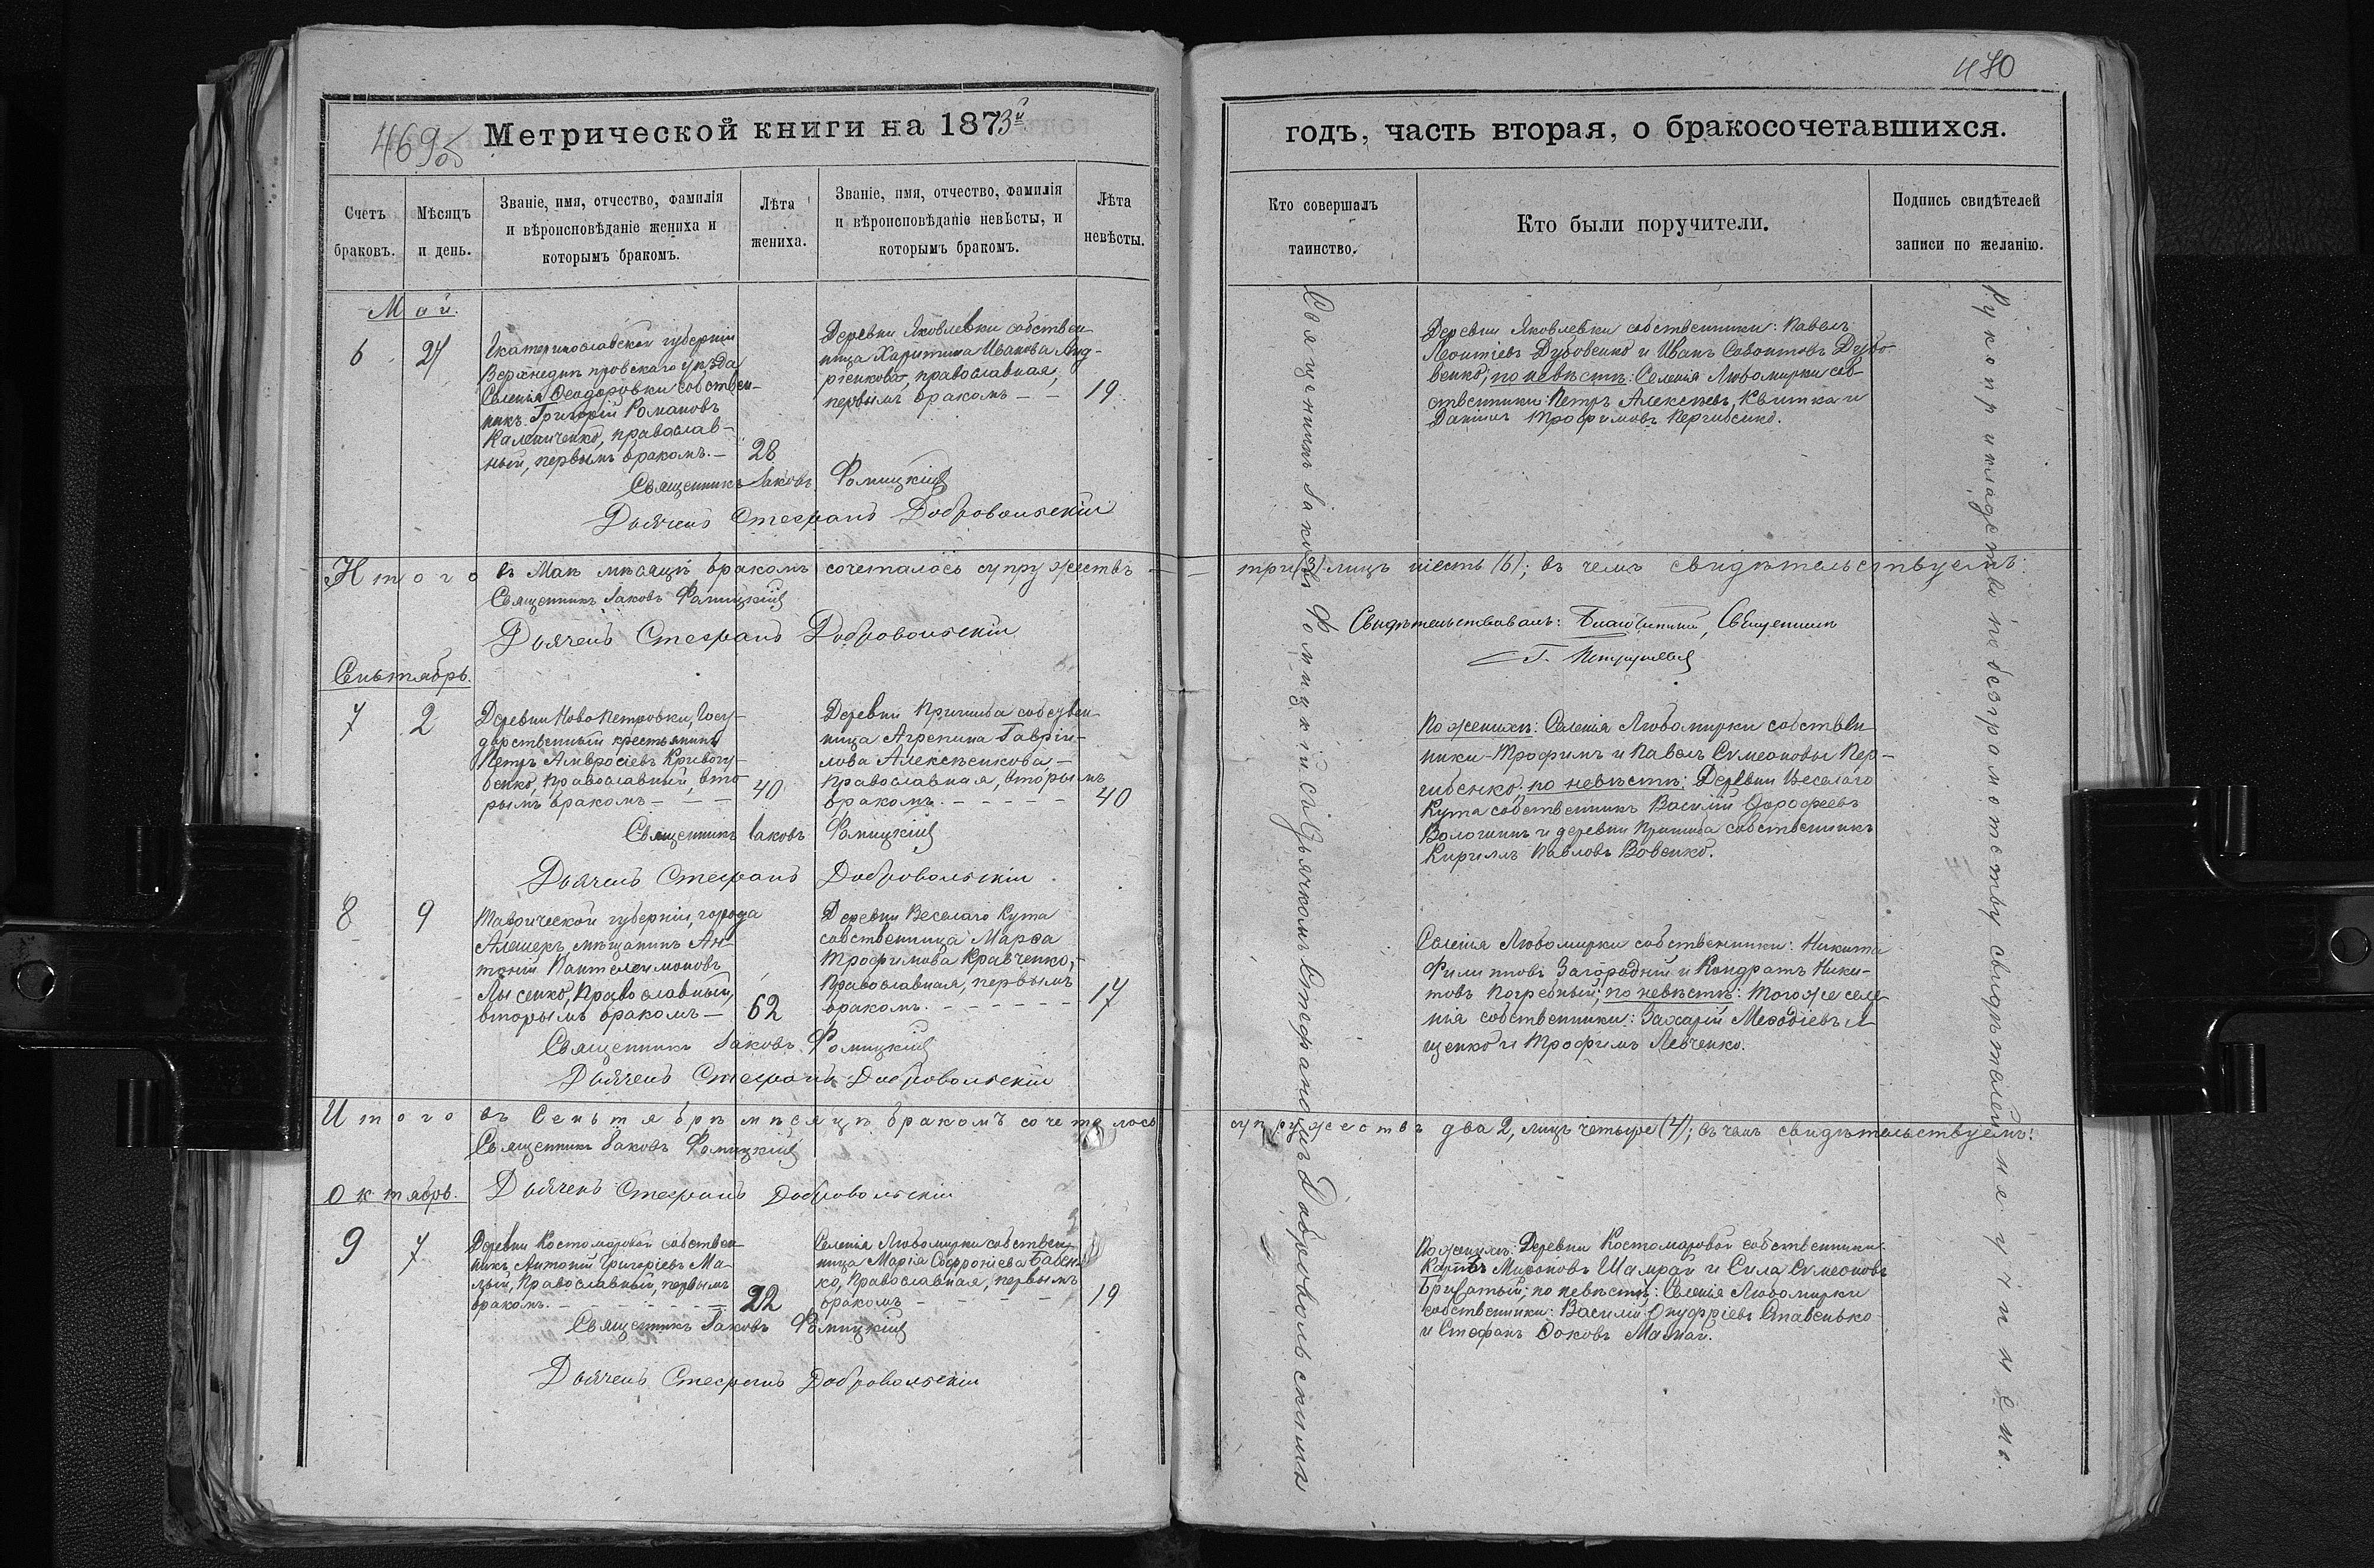 469об
Метрической книги на 1873й
Счетъ
браковъ.
Мѣсяцъ
и день.
Званіе, имя, отчество, фамилія
и вѣроисповѣданіе жениха и
которымъ бракомъ.
Лѣта
жениха.
Званіе, имя, отчество, фамилія
и вѣроисповѣданіе невѣсты, и
которымъ бракомъ.
Лѣта
невѣсты.
Май.
6
24
Екатеринославской губерніи
Верхнеднѣпровскаго уѣзда
Селенія Ѳеодоровки собствен-
никъ Григорій Романовъ
Калениченко, православ-
ный, первымъ бракомъ. —
28
Деревни Яковлевки собствен-
ница Харитина Иванова Анд-
ріенкова, православная,
первымъ бракомъ — —
19
Священникъ Іаковъ Фомицкій
Дьячекъ Стефанъ Добровольскій
Итого въ Маѣ мѣсяцѣ бракомъ сочеталось супружествъ —
Священникъ Іаковъ Фомицкій
Дьячекъ Стефанъ Добровольскій
Сентябрь.
7
2
Деревни Ново Петровки, Госу-
дарственный крестьянинъ
Петръ Амвросіевъ Кривогу-
бенко, православный, вто-
рымъ бракомъ — — —
40
Деревни Пришиба собствен-
ница Агрепина Гавріи-
лова Алексѣенкова, —
Православная, вторымъ
бракомъ. — — — — —
40
Священникъ Іаковъ Фомицкій
Дьячекъ Стефанъ Добровольскій
8
9
Таврической губерніи, города
Алешекъ, мѣщанинъ Ан-
тоній Пантелеимоновъ
Лысенко, Православный,
вторымъ бракомъ —
62
Деревни Веселаго Кута
собственница Марѳа
Трофимова Кравченко, —
Православная, первымъ
бракомъ. — — — — —
17
Священникъ Іаковъ Фомицкій
Дьячекъ Стефанъ Добровольскій
Итого въ Сентябрѣ мѣсяцѣ бракомъ сочеталось
Священникъ Іаковъ Фомицкій
Октябрь.
Дьячекъ Стефанъ Добровольскій
9
7
Деревни Костомаровой собствен-
никъ Антоній Григоріевъ Ма-
лый, Православный, первымъ
бракомъ. — — — — —
22
Селенія Любомирки собствен-
ница Марія Софроніева Бабен-
ко, Православная, первымъ
бракомъ — — — —
19
Священникъ Іаковъ Фомицкій
Дьячекъ Стефанъ Добровольскій
480
годъ, часть вторая, о бракосочетавшихся.
Кто совершалъ
таинство.
Кто были поручители.
Подпись свидѣтелей
записи по желанію.
Священникъ Іаковъ Фомицкій съ Дьячкомъ Стефаномъ Добровольскимъ
Деревни Яковлевки собственники: Павелъ
Леонтіевъ Дубовенко и Иванъ Савоитовъ Дубо-
венко; по невѣстѣ: Селенія Любомирки соб-
ственники: Петръ Алексѣевъ Квитка и
Даніилъ Трофимовъ Пергибенко.
три (3) лицъ шесть (6); въ чемъ свидѣтельствуемъ:
Свидѣтельствовалъ: Благочинный, Священникъ
Г.
По женихѣ: Селенія Любомирки собствен-
ники — Трофимъ и Павелъ Симеоновы Пер-
гибенко; по невѣстѣ: Деревни Веселаго
Кута собственникъ Василій Дороѳеевъ
Вологинъ и деревни Пришиба собственникъ
Кириллъ Павловъ Вовенко.
Селенія Любомирки собственники: Никита
Филиповъ Загородній и Кондратъ Ники-
товъ Погребный; по невѣстѣ: Того же селе-
нія собственники: Захарій Меѳодіевъ
и Трофимъ Левченко.
супружествъ два 2, лицъ четыре (4); въ чемъ свидѣтельствуемъ:
По женихѣ: Деревни Костомаровой собственники:
Карпъ Мироновъ Шамрай и Сила Симеоновъ
по невѣстѣ: Селенія Любомирки
собственники: Василій Онуфріевъ Ставенько
и Стефанъ Мамай.
Рукоприкладства по безграмотству свидѣтелей не учинены.